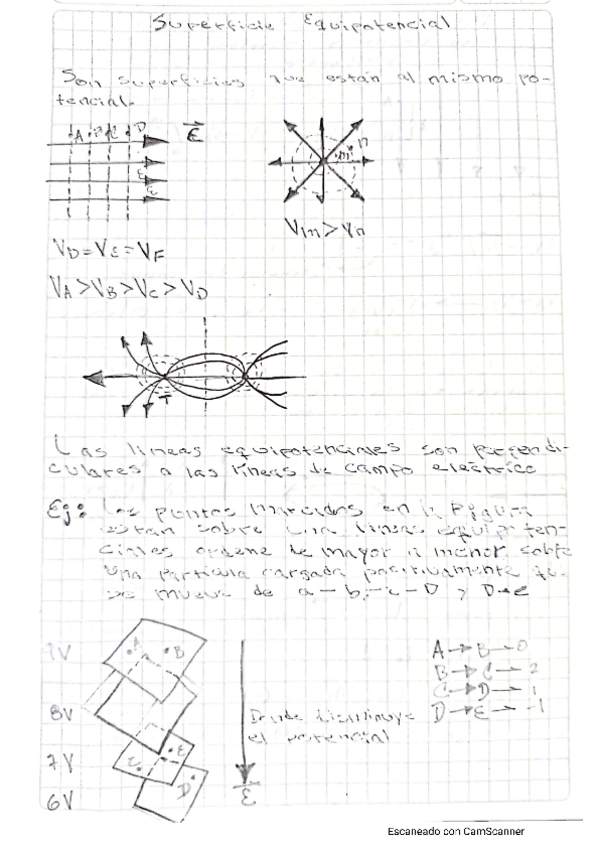 Superficie Equipotencial
Son superficies que están al mismo po-
tencial.
A B C D E
E
E
n
m
Vm>Vn
VD=VE=VF
VA>VB>VC>VD
Las lineas equipotenciales son perpendi-
culares a las lineas de campo electrico
Ej: Los puntos marcados en la figura
estan sobre una lineas equipoten-
ciales ordene de mayor a menor sobre
una particula cargada positivamente
se mueve de a-b-c-D y D→E
A B
9V
8V
7V
6V
C E
D
Donde disminuye
el potencial
E
A→B→0
B→C→2
C→D→1
D→E→-1
Escaneado con CamScanner